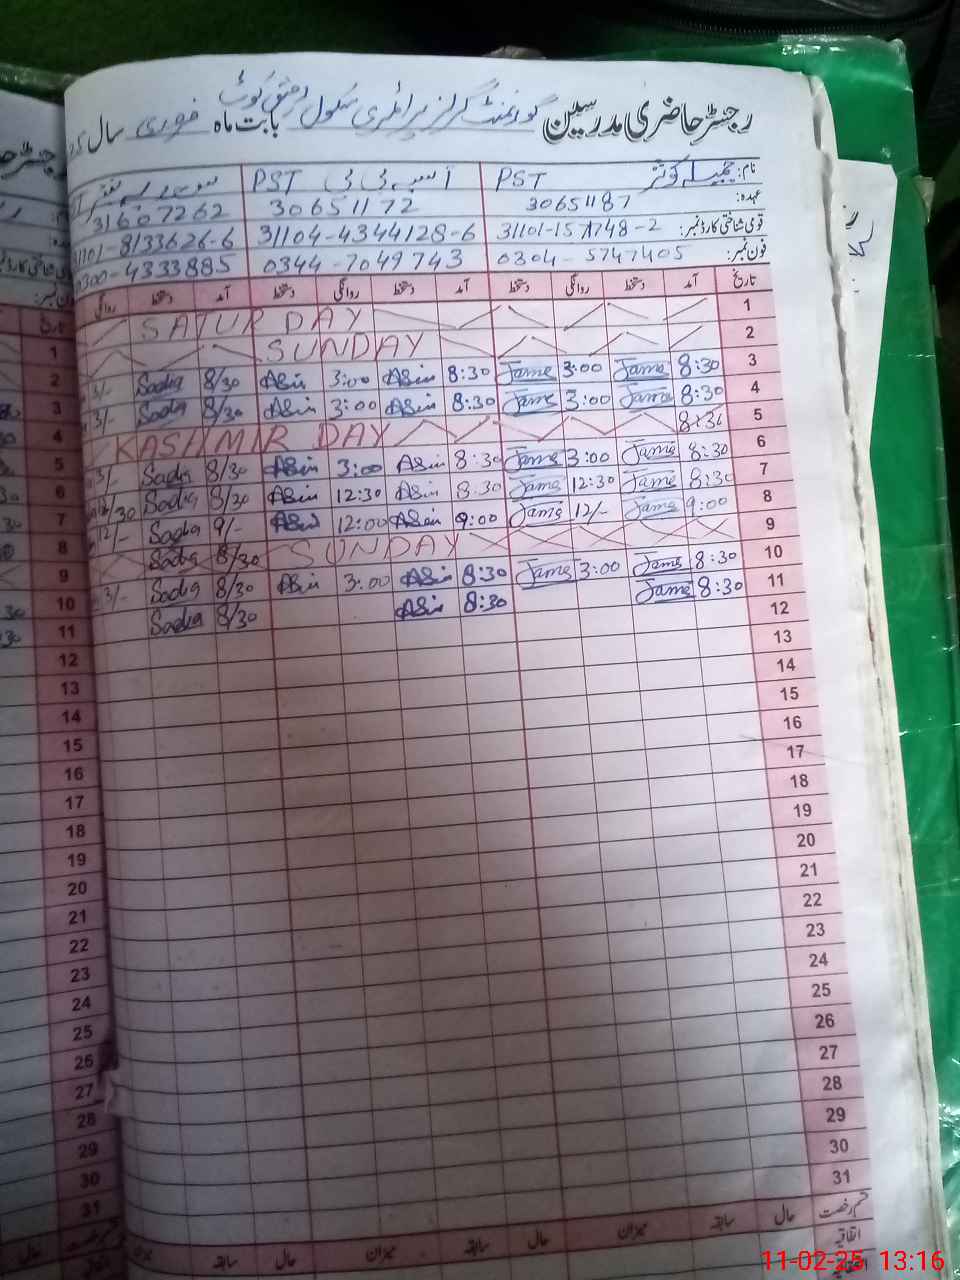 رجسٹر حاضری مدرسین گورنمنٹ گرلز پرائمری سکول بابت ماہ فروری سال 25
نام: جمیلہ کوثر PST آسیہ بی بی PST
عہدہ: 30651187 30651172 31607262
قومی شناختی کارڈ نمبر: 31104-4344128-6 31101-8133626-6
فون نمبر: 0304-5747405 0344-7049743 0300-4333885
تاریخ آمد دستخط روانگی دستخط آمد دستخط روانگی دستخط آمد دستخط روانگی
1 SATURDAY
2 SUNDAY
3 8:30 Jame 3:00 Jame 8:30 ASin 3:00 ASin 8/30 Sadia 3/-
4 8:30 Jame 3:00 Jame 8:30 ASin 3:00 ASin 8/30 Sadia 3/-
5 8:30 KASHMIR DAY
6 8:30 Jame 3:00 Jame 8:30 ASin 3:00 ASin 8/30 Sadia 3/-
7 8:30 Jame 12:30 Jame 8:30 ASin 12:30 ASin 8/30 Sadia 12/30
8 9:00 Jame 12/- Jame 9:00 ASin 12:00 ASin 9/- Sadia 12/-
9 SUNDAY 8/30 Sadia
10 8:30 Jame 3:00 Jame 8:30 ASin 3:00 ASin 8/30 Sadia 3/-
11 8:30 Jame 8:30 ASin 8/30 Sadia
12
13
14
15
16
17
18
19
20
21
22
23
24
25
26
27
28
29
30
31
قسم رخصت حال سابقہ میزان حال سابقہ میزان حال سابقہ
اتفاقیہ
11-02-25 13:16